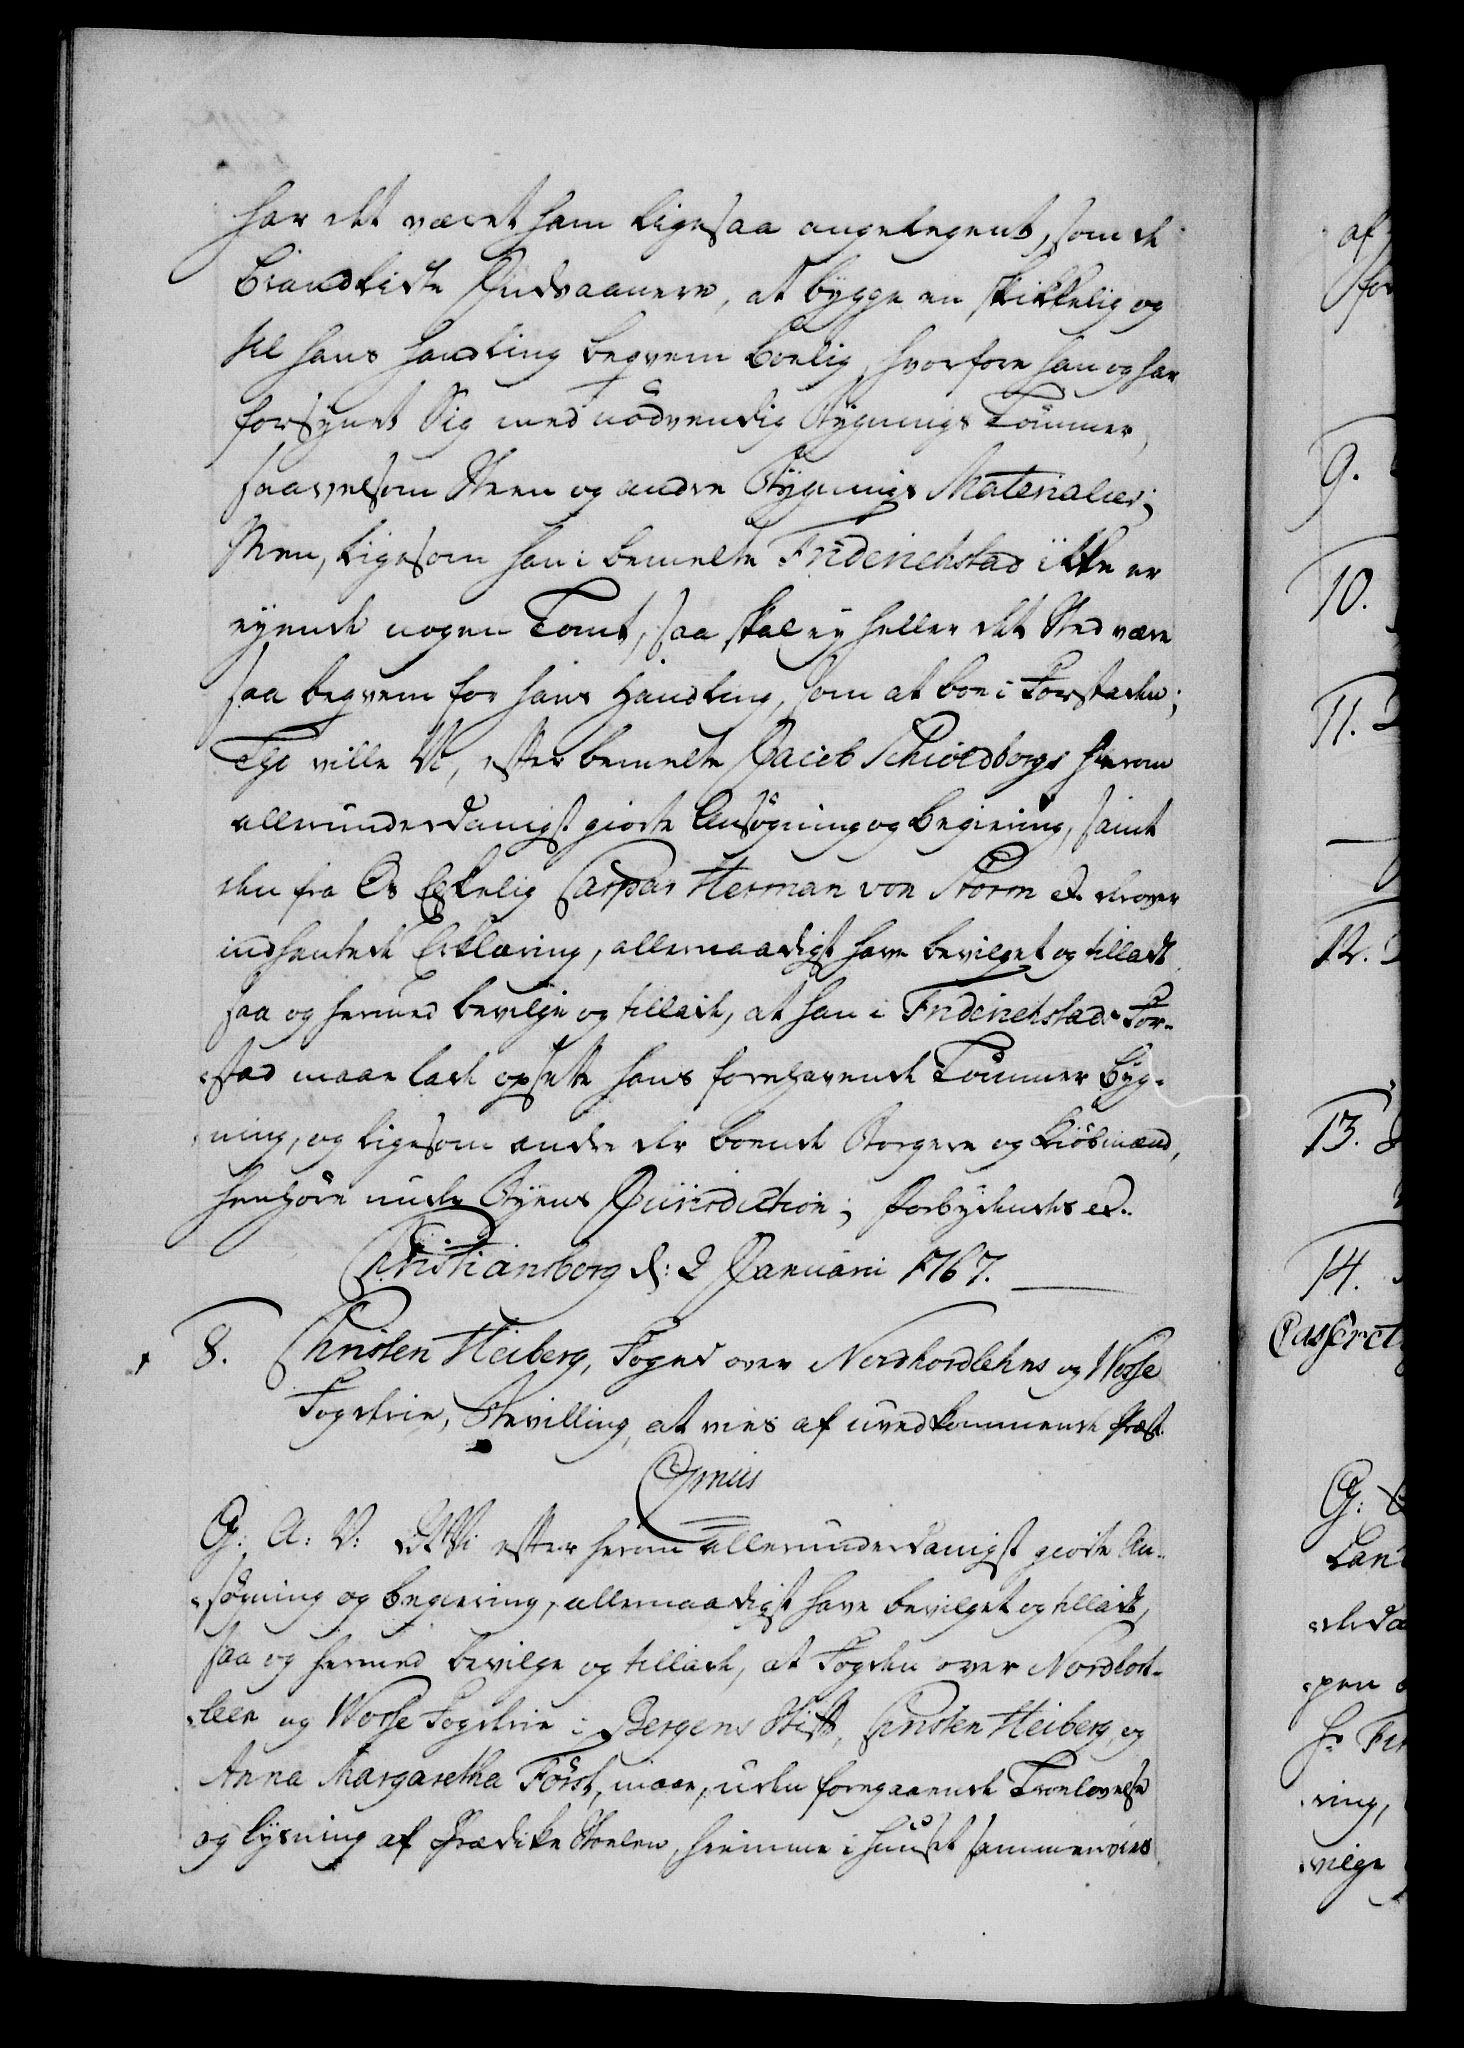 har det været ham ligesaa angelegent, som de
brandlidte Indvaanere, at bygge en skikkelig og
til hans Handling beqvem boelig, hvorfore han og har
forsynet Sig med nödvendig Bygnings Tömmer,
saavelsom Steen og andre Bygnings Materialier;
Men, ligesom han i bemelte Friderichstad ikke er
eyende nogen Tomt, saa skal ey heller det Sted være
saa beqvem for hans Handling, som at boe i Forstaden;
Thi ville Vi, efter bemelte Jacob Schioldborgs herom
allerunderdanigst giorte Ansögning og begiering, samt
den fra Os Elskelig Caspar Herman von Storm &c. derover
indhentede Erklæring, allernaadigst have bevilget og tilladt
saa og hermed bevilge og tillade, at han i Friderichstads For-
stad maae lade opsette hans forehavende Tömmer Byg-
ning, og ligesom andre der boende Borgere og Kiöbmænd,
henhöre under Byens Jurisdiction; Forbydendes &c.
Christiansborg d: 2 Januarii 1767.
8. Christen Heiberg, Foged over Nordhordlehns og Wosse
Fogderie, Bevilling, at vies af uvedkommende Præst.
Gratis
G: A: V: at Vi efter herom allerunderdanigst giorte An-
sögning og begiering, allernaadigst have bevilget og tilladt,
saa og hermed bevilge og tillade, at Fogden over Nordhord-
leen og Wosse Fogderie i Bergens Stift, Christen Heiberg, og
Anna Margaretha Först, maae, uden foregaaende Trolovelse
og lysning af Prædike Stolen, hiemme i Huuset sammenvies
af
for
9.
10.
11.
12.
13.
14.
Casseret
G:
Land
pen
ring,
vilge